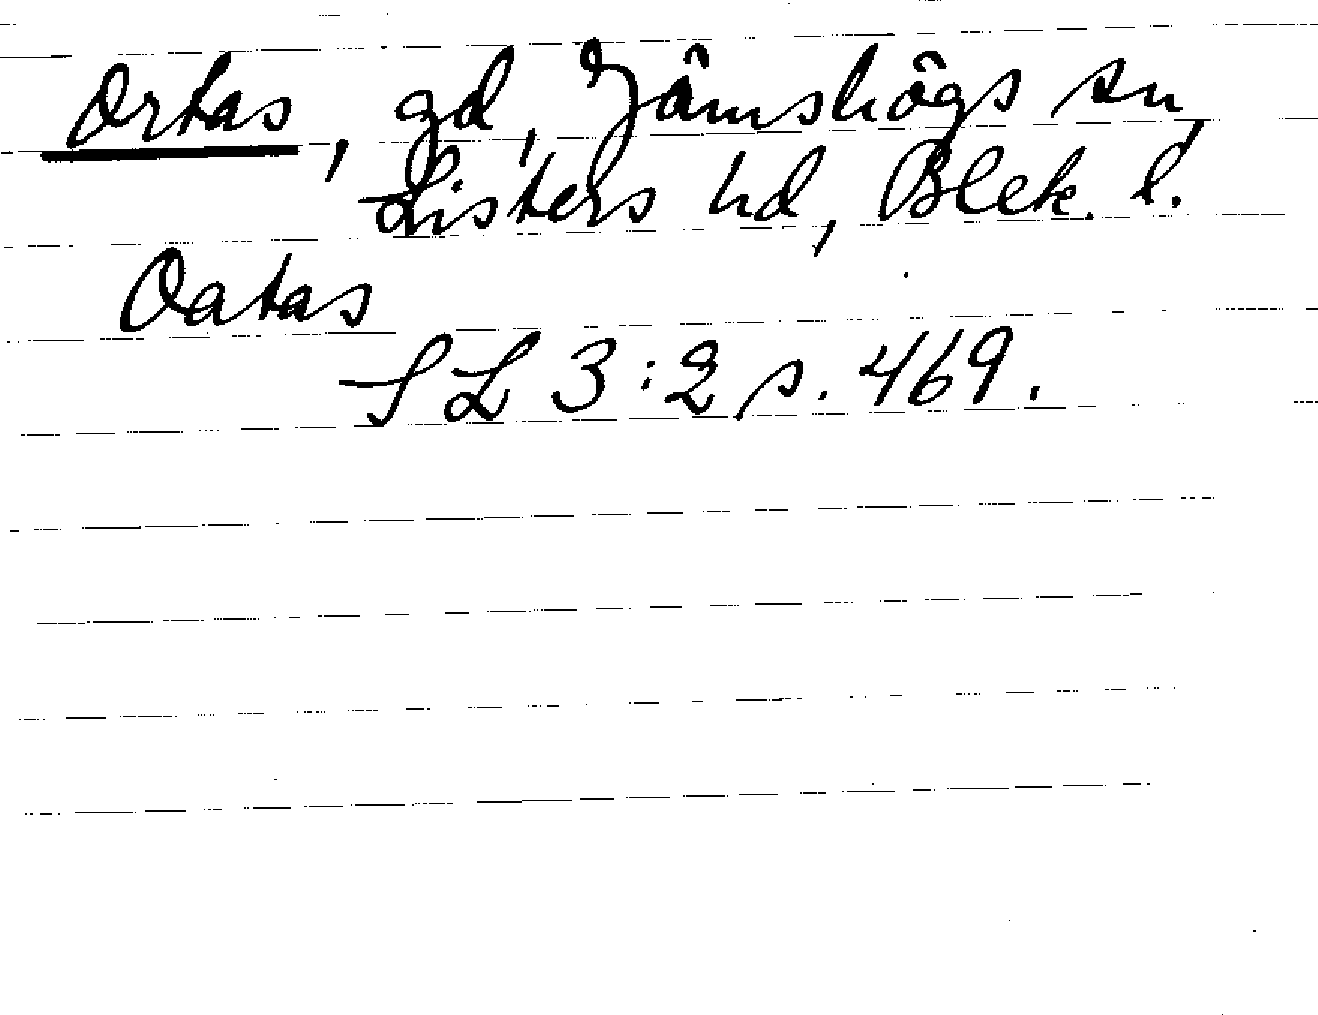 Ortas, gd, Jämshögs sn,
Listers hd, Blek. l.
Oatas
SL 3:2 s. 469.